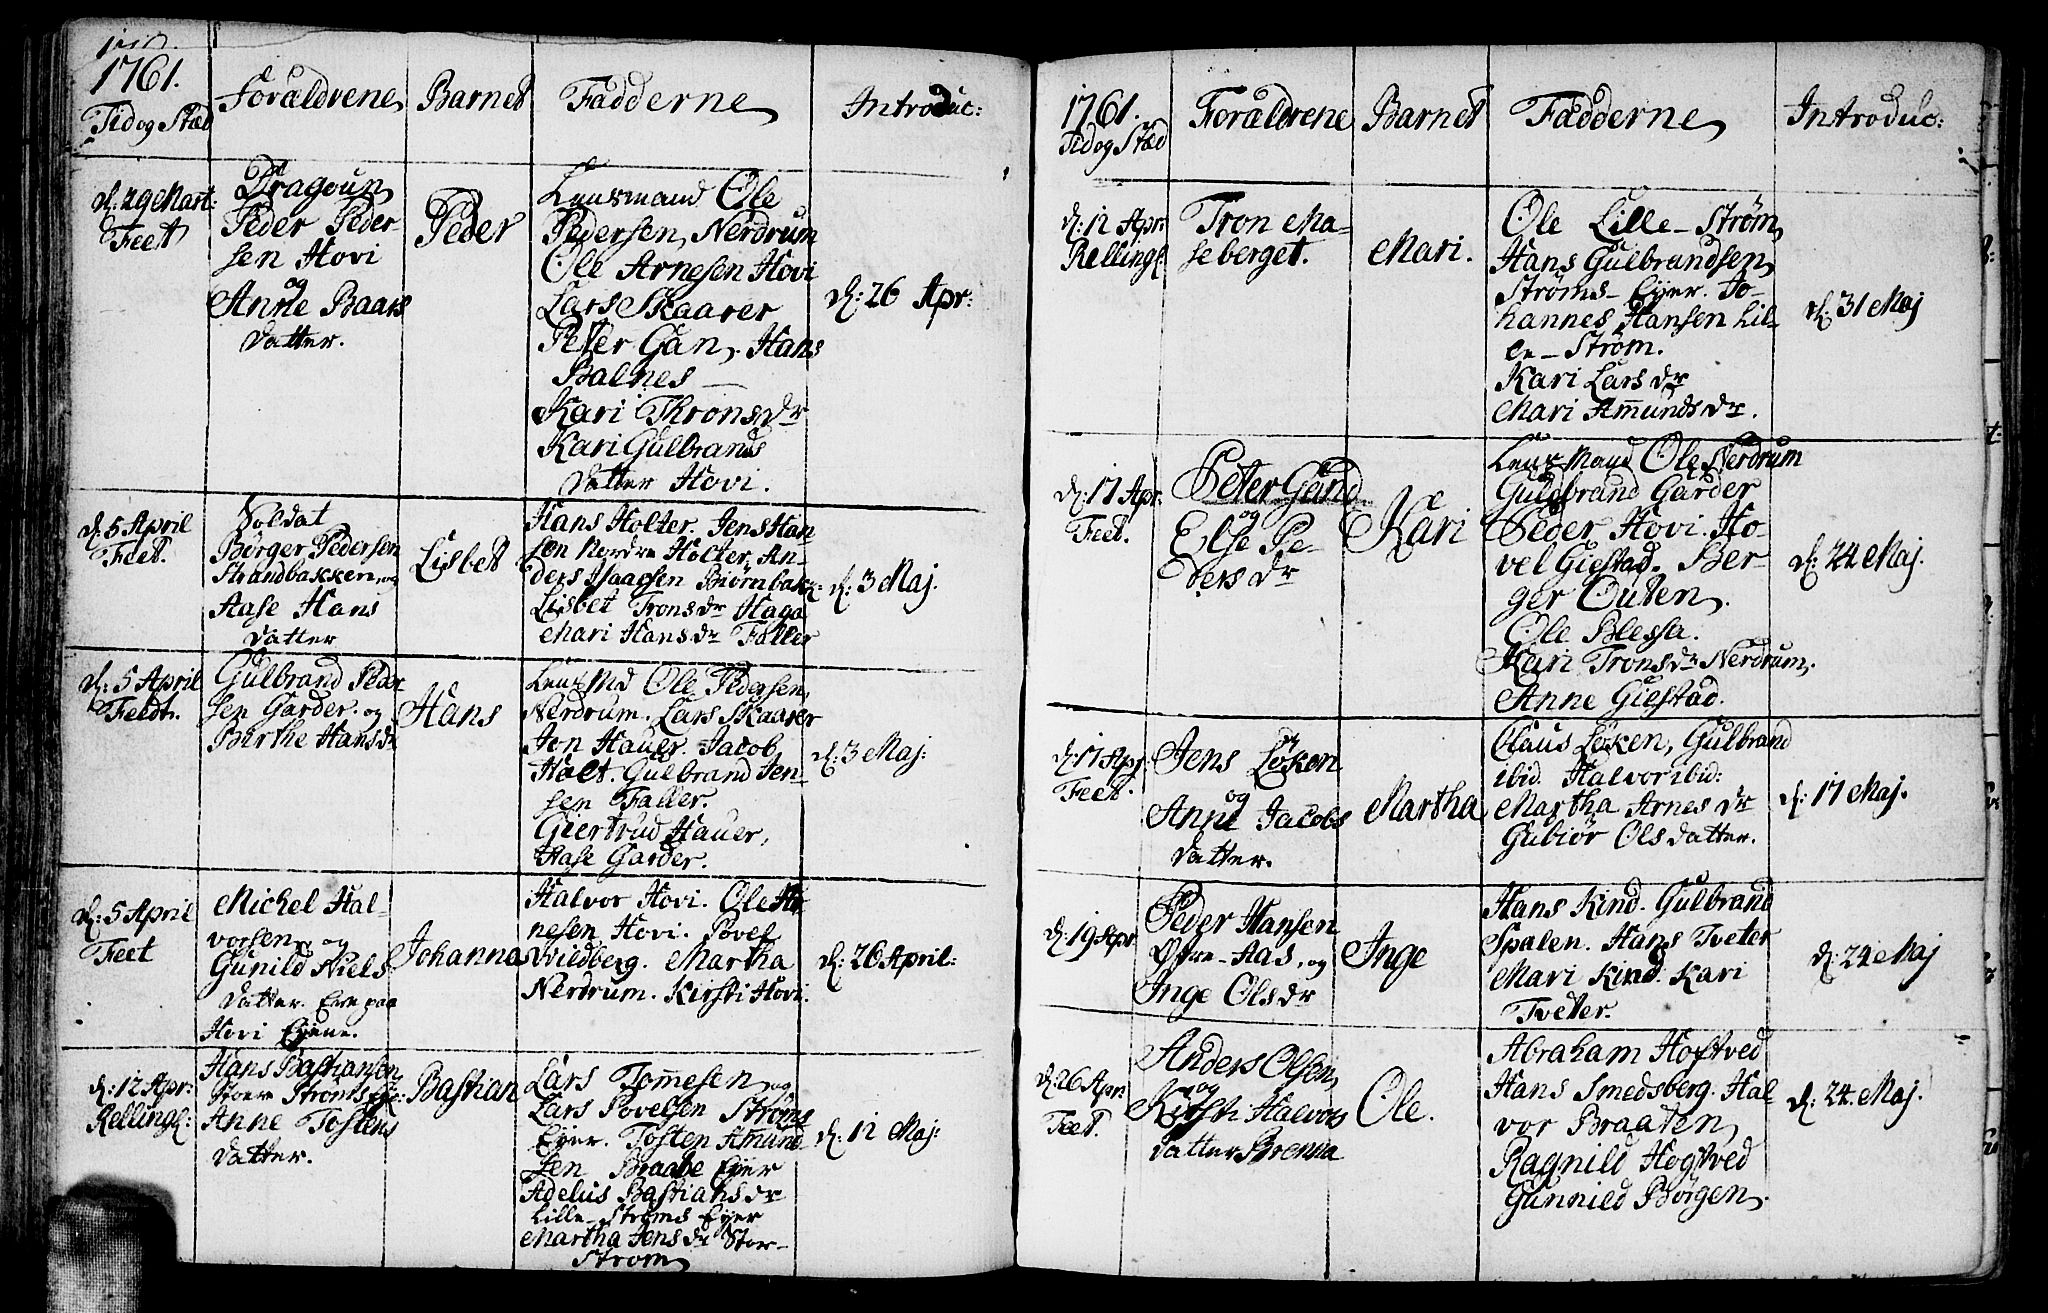 1761.
Tid og Stæd
Forældrene
Barnet
Fadderne
Introduc:
d: 29 Mart:
Feet
Dragoun
Peder Peder-
sen Hovi
og
Anne Baars
datter.
Peder
Lensmand Ole
Pedersen Nerdrum
Ole Arnesen Hovi
Lars Skaarer
Peter Gan. Hans
Balnes
Kari Throns dr
Kari Gulbrands
datter Hovi.
d: 26 Apr:
d: 5 April
Feet.
Soldat
Børger Pedersen
Strandbakken, og
Aase Hans
datter
Lisbet
Hans Holter. Jens Han-
sen Nordre Holter, An-
ders Isaacsen Biørnbak:
Lisbet Trons dr Haga
Mari Hans dr Faller
d: 3 Maj.
d: 5 April
Feldt.
Gulbrand Peder
sen Garder. og
Birthe Hans dr
Hans
Lens Md Ole Pedersen,
Nerdrum. Lars Skaarer
Jon Hauer. Jacob
Halt. Gulbrand Jen-
sen Faller.
Giertrud Hauer,
Aase Garder.
d: 3 Maj:
d: 5 April
Feet
Michel Hal-
vorsen og
Gunild Niels
datter. Ene paa
Hovi Eyene.
Johanna
Halvor Hovi. Ole Ar
nesen Hovi. Povel
Vildberg. Martha
Nerdrum. Kirsti Hovi.
d: 26 April:
d: 12 Apr:
Relling:
Hans Bastiansen
Stoer Strøms Eje:
Anne Tostens
datter.
Bastian
Lars Tomesen og
Lars Povelsen Strøms
Eyer. Tosten Amund
sen Braate Eyer
Adelus Bastians dr
Lille-Strøms Eyer
Martha Jens dr Stor-
strøm
d: 12 Maj:
1761.
Tid og Stæd
Forældrene
Barnet
Fadderne
Introduc:
d: 12 Apr:
Relling:
Tron Ma-
seberget.
Mari.
Ole Lille-Strøm,
Hans Gulbrandsen
Strøms-Eyer. Jo-
hannes Hansen Lil-
le-Strøm.
Kari Lars dr
Mari Amunds dr.
d: 31 Maj
d: 17 Apr.
Feet.
Peter Gand
og
Else Pe-
ders dr
Kari
Lens Mand Ole Nerdrum
Guldbrand Garder
Peder Hovi. Ho-
vel Giestad. Ber-
ger Outen.
Ole Blessa.
Kari Trons dr Nerdrum,
Anne Giestad.
d: 24 Maj.
d: 17 Apr
Feet.
Jens Løken
og
Anne Jacobs
datter.
Martha
Claus Løken, Gulbrand
ibid. Halvor ibid:
Martha Arnes dr
Gubiør Ols datter.
d: 17 Maj.
d: 19 Apr
Peder Hansen
Øfre-Aas, og
Inge Ols dr
Inge
Hans Kind. Gulbrand
Spalen. Hans Tveter
Mari Kind. Kari
Tveter.
d: 24 Maj
d: 26 Apr:
Feet.
Anders Olsen
og
Kirsti Halvors
datter Brenna
Ole.
Abraham Hofstved
Hans Smedsberg. Hal-
vor Braaten,
Ragnild Hogstved
Gunnild Børgen.
d: 24. Maj.